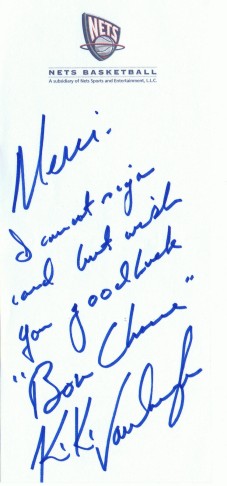 NETS
NETS BASKETBALL
A subsidiary of Nets Sports and Entertainment, L.L.C.
Merci.
I cannot sign
card but wish
you good luck
"Bon Chance"
KiKi Vandeweghe